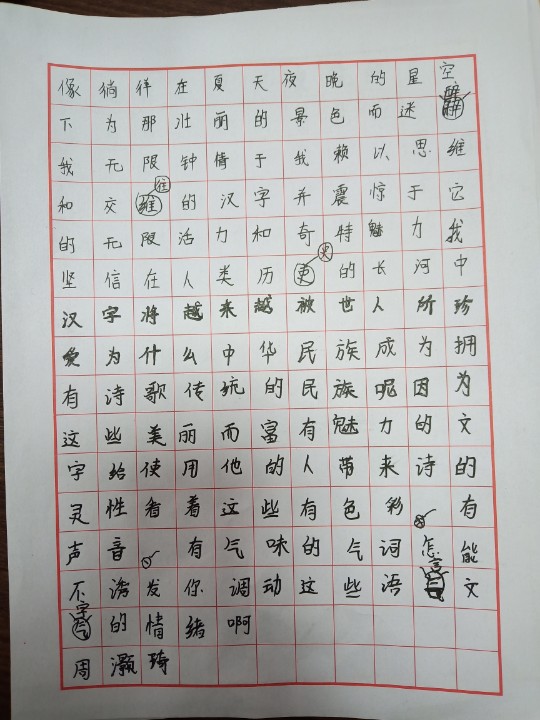 像徜徉在夏天夜晚的星空
下为那壮丽的景色而迷醉
我无限钟倩于我赖以思维
和交往的汉字并震惊于它
的无限活力和奇特魅力我
坚信在人类历史的长河中
汉字将越来越被世人所珍
爱为什么中华民族成为拥
有诗歌传统的民族呢因为
这些美丽而富有魅力的文
字给使用他的人带来诗的
灵性看着这些有色彩有
声音有气味的气词怎能
不诱发你调动这些语言文
字的情绪啊
周灏琦